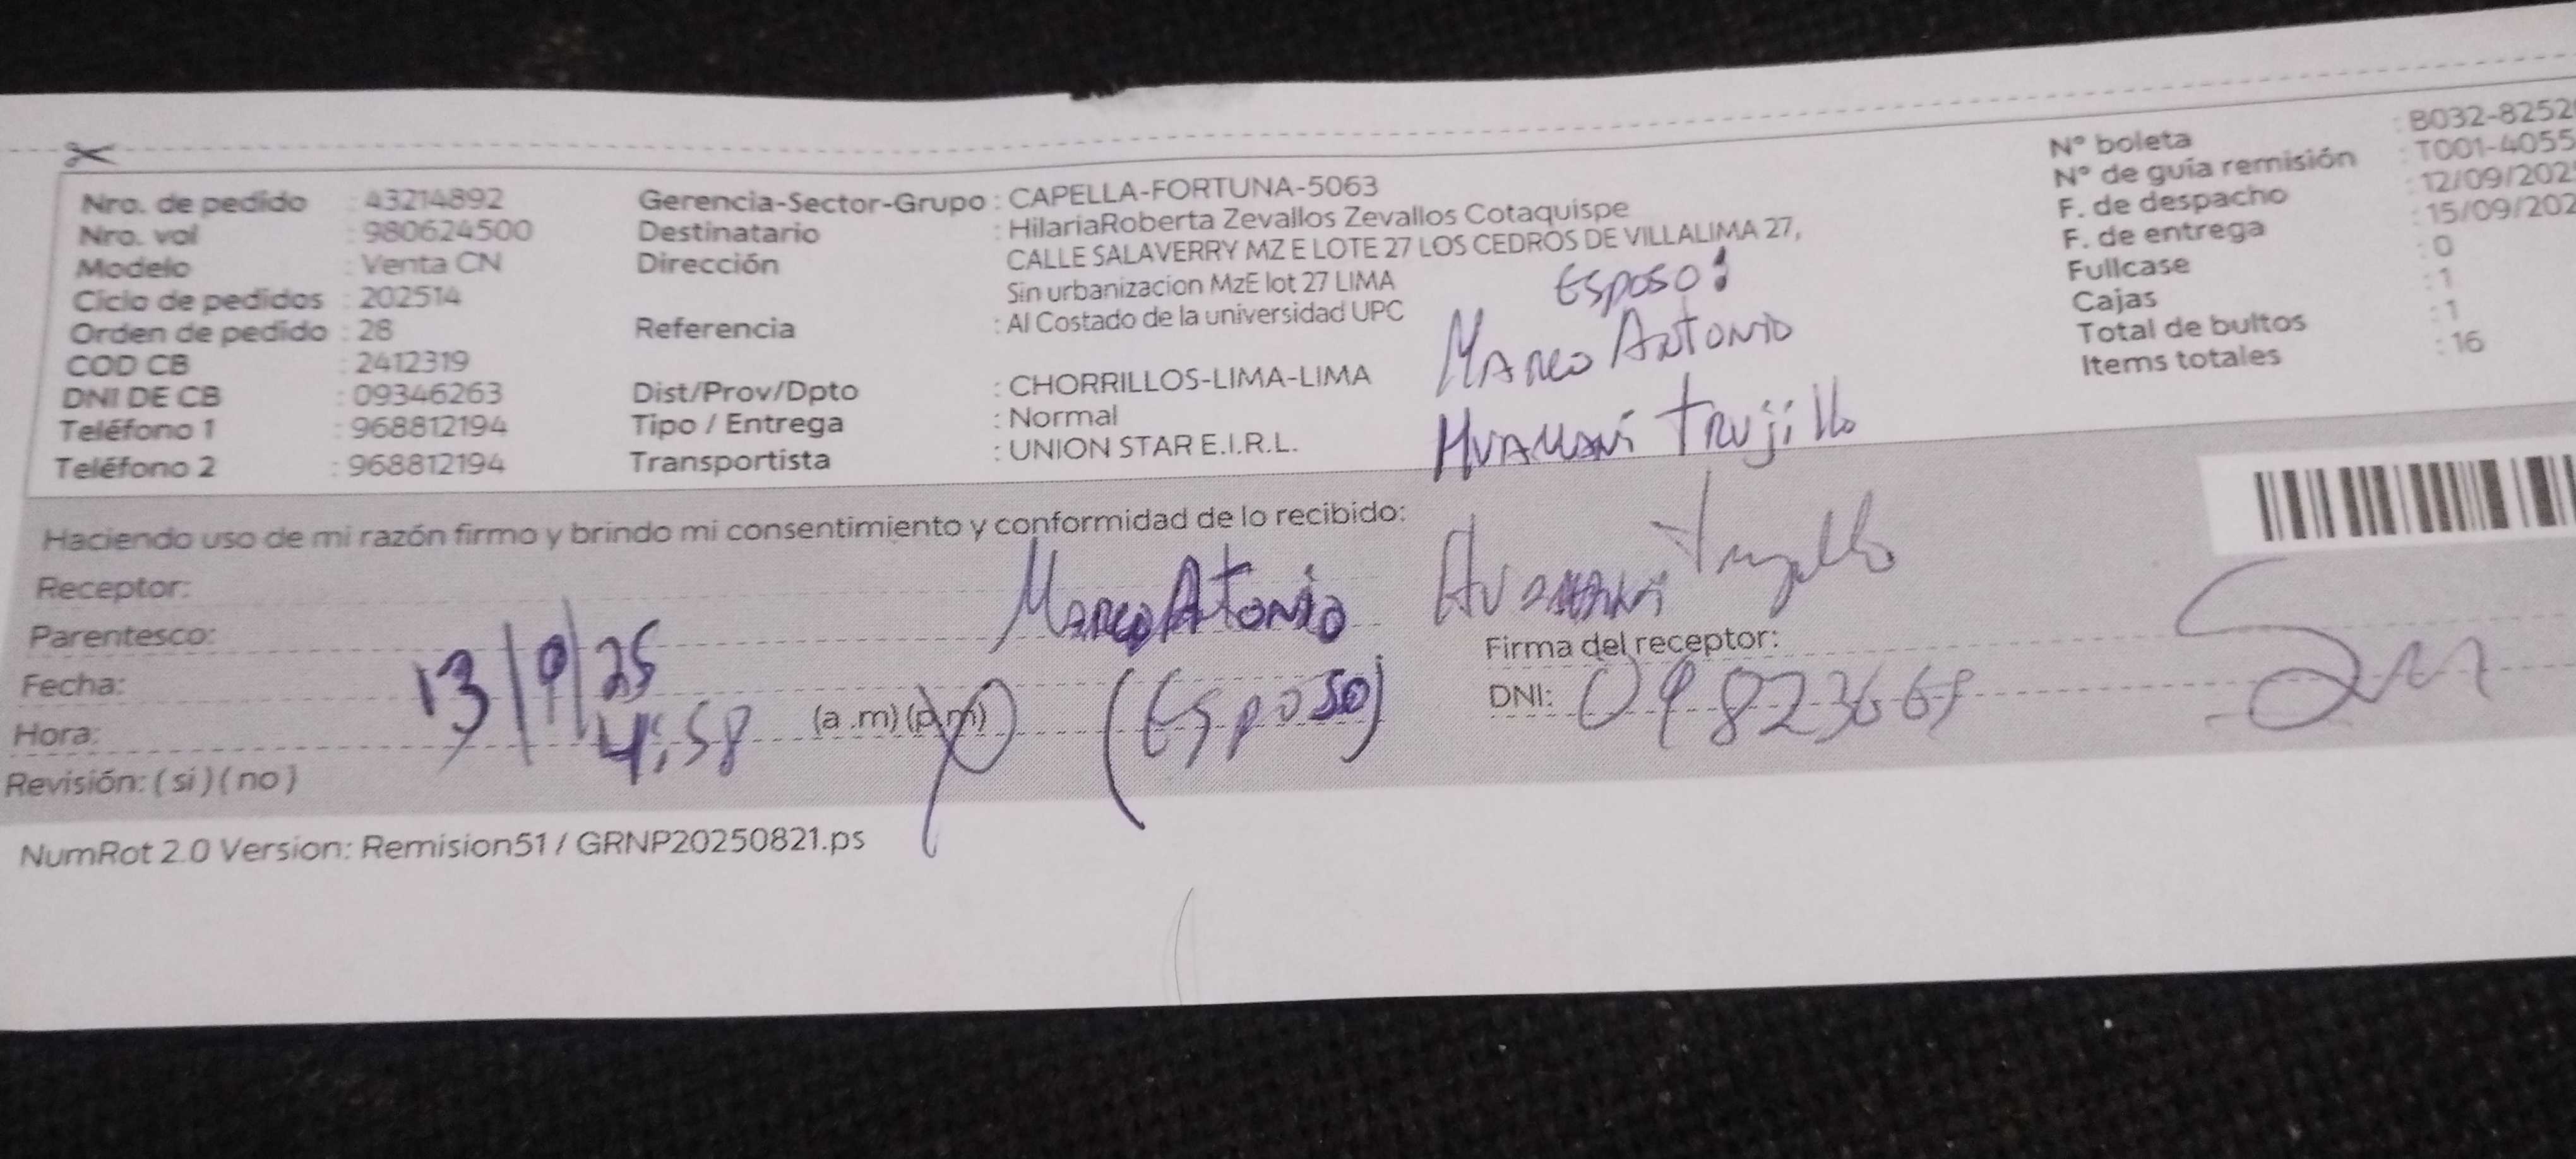 Nro. de pedido : 43214892
Nro. vol : 980624500
Modelo : Venta CN
Ciclo de pedidos : 202514
Orden de pedido : 28
COD CB : 2412319
DNI DE CB : 09346263
Teléfono 1 : 968812194
Teléfono 2 : 968812194
Gerencia-Sector-Grupo : CAPELLA-FORTUNA-5063
Destinatario : HilariaRoberta Zevallos Zevallos Cotaquispe
Dirección CALLE SALAVERRY MZ E LOTE 27 LOS CEDROS DE VILLALIMA 27,
Sin urbanizacion MzE lot 27 LIMA
Referencia : Al Costado de la universidad UPC
Dist/Prov/Dpto : CHORRILLOS-LIMA-LIMA
Tipo / Entrega : Normal
Transportista : UNION STAR E.I.R.L.
Esposo:
Marco Antonio
Huamani Trujillo
N° boleta : B032-8252
N° de guía remisión : T001-4055
F. de despacho : 12/09/202
F. de entrega : 15/09/202
Fullcase : 0
Cajas : 1
Total de bultos : 1
Items totales : 16
Haciendo uso de mi razón firmo y brindo mi consentimiento y conformidad de lo recibido:
Receptor: Marco Antonio Huamani Trujillo
Parentesco: (Esposo)
Fecha: 13/9/25
Hora: 4:58 (a .m) (p.m)
Revisión: ( si ) ( no )
Firma del receptor:
DNI:
NumRot 2.0 Version: Remision51 / GRNP20250821.ps